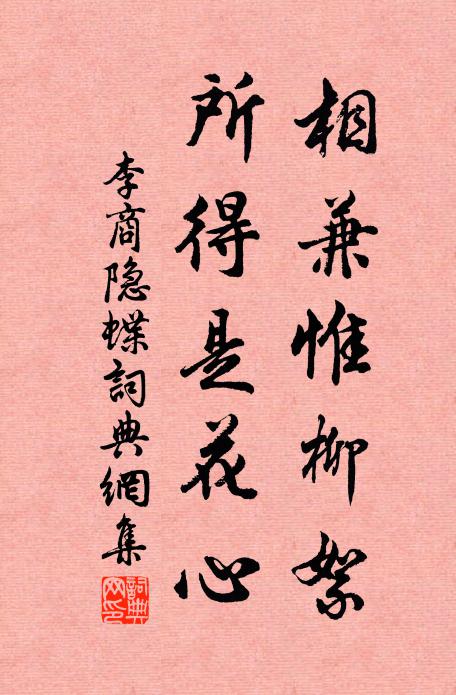 相兼惟柳絮
所得是花心
李商隐蝶詞典網集
詞典網印